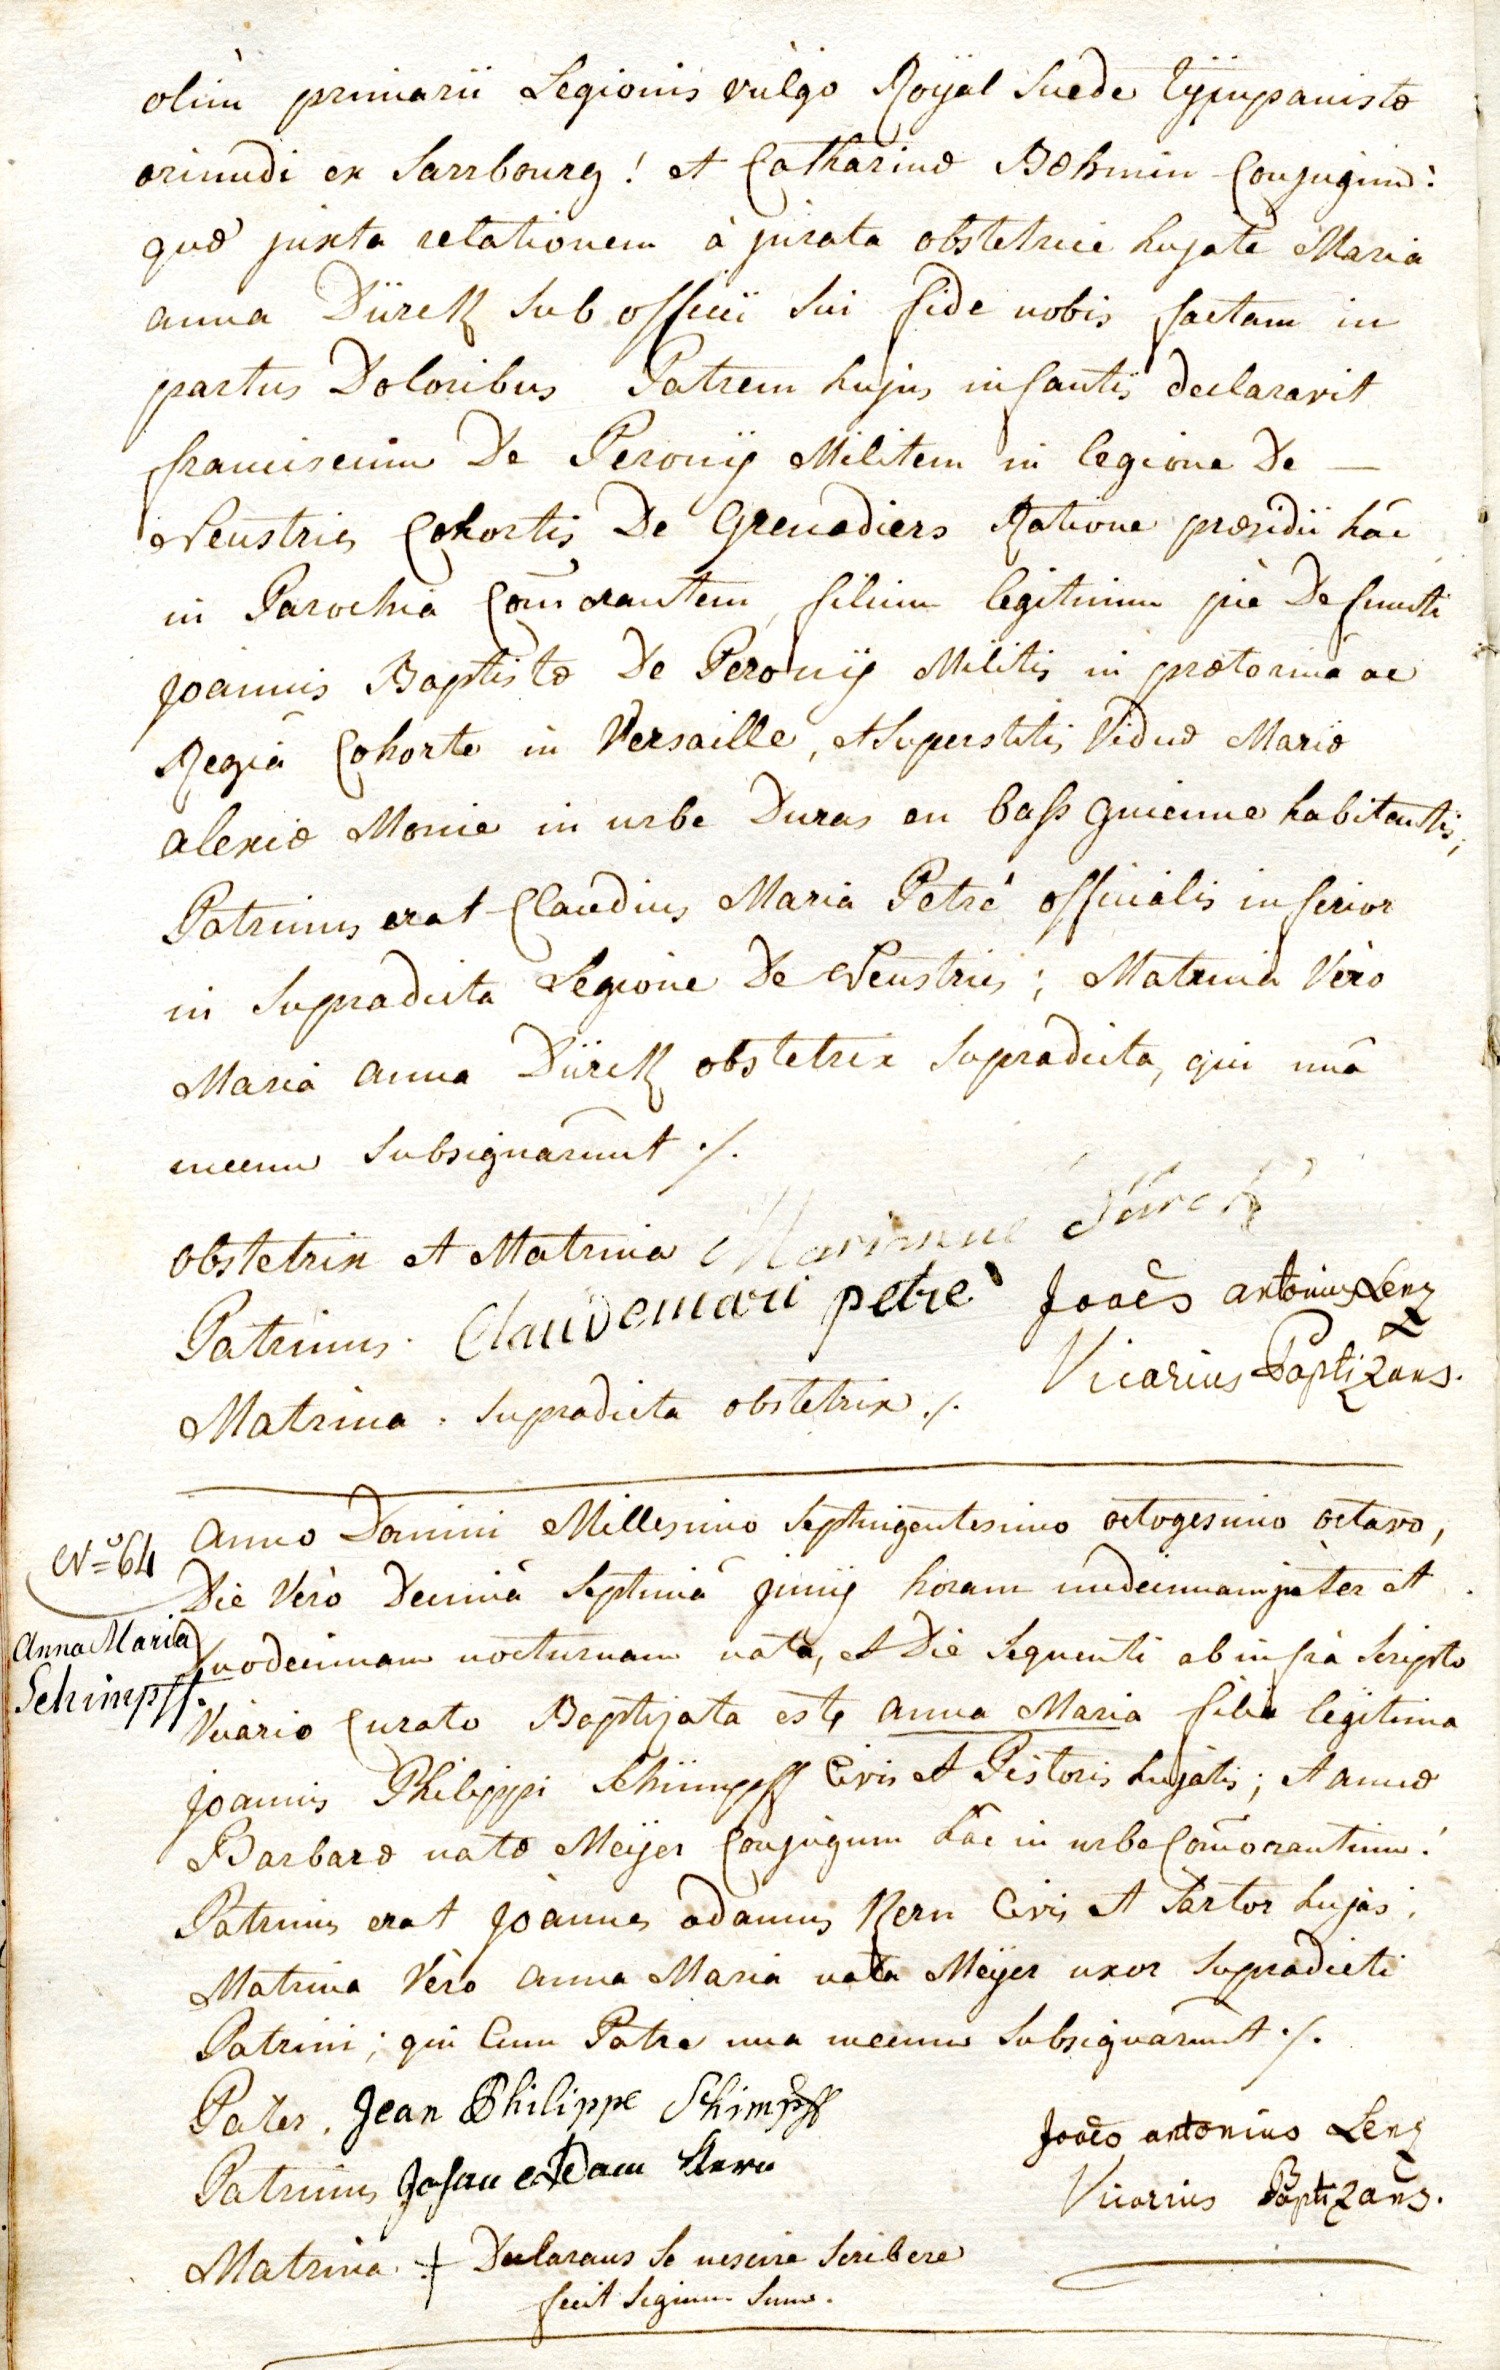 olim primarii Legionis vulgo Royal Suede Tÿmpanistæ
oriundi ex Sarrbourg! et Catharinæ Bœhmin Conjugum:
quæ juxta relationem à jurata obstetrice hujate Maria
anna Dürck sub officii sui fide nobis factam in
partus Doloribus Patrem hujus infantis declaravit
franciscum De Peronij Militem in legione De —
Neustrie Cohortis De Grenadiers Ratione præsidii hâc
in Parochia Com̄orantem, filium legitimum piè Defuncti
joannis Baptistæ De Peronij Militis in prætorina ac
Regiâ Cohorte in Versaille, et Superstitis Viduæ Mariæ
alexiæ Monie in urbe Duras en bass guienne habitantis;
Patrinus erat Claudius Maria Petré officialis inferior
in Supradicta Legione De Neustrie; Matrina Vèro
Maria anna Dürck obstetrix Supradicta, qui unâ
mecum Subsignarunt ./.
obstetrix et Matrina Marianne Dürck
Patrinus. Claudemari petre Joaēs antonius Lenz
Vicarius Baptizans.
Matrina. Supradicta obstetrix ./.
Nº 64 anno Domini Millesimo Septingentesimo octogesimo octavo,
Die Vèro Decimâ Septimâ junij horam undecimam inter et
Anna Maria Duodecimam nocturnam nata, et Die Sequenti ab infrà Scripto
Schimpff. Vicario Curato Baptizata est, anna Maria filia legitima
joannis Philippi Schimpff Civis et Pistoris hujatis; et annæ
Barbaræ natæ Meÿer Conjugum hâc in urbe Com̄orantium!
Patrinus erat joannes adamus Kern Civis et Sartor hujas;
Matrina Vèro anna Maria nata Meÿer uxor Supradicti
Patrini; qui Cum Patre una mecum Subsignarunt ./.
Pater. Jean Philippe Schimpff
Joaēs antonius Lenz
Patrinus Johan Adam Kern
Vicarius Baptizans.
Matrina. + Declarans se nescire scribere
fecit signum suum.